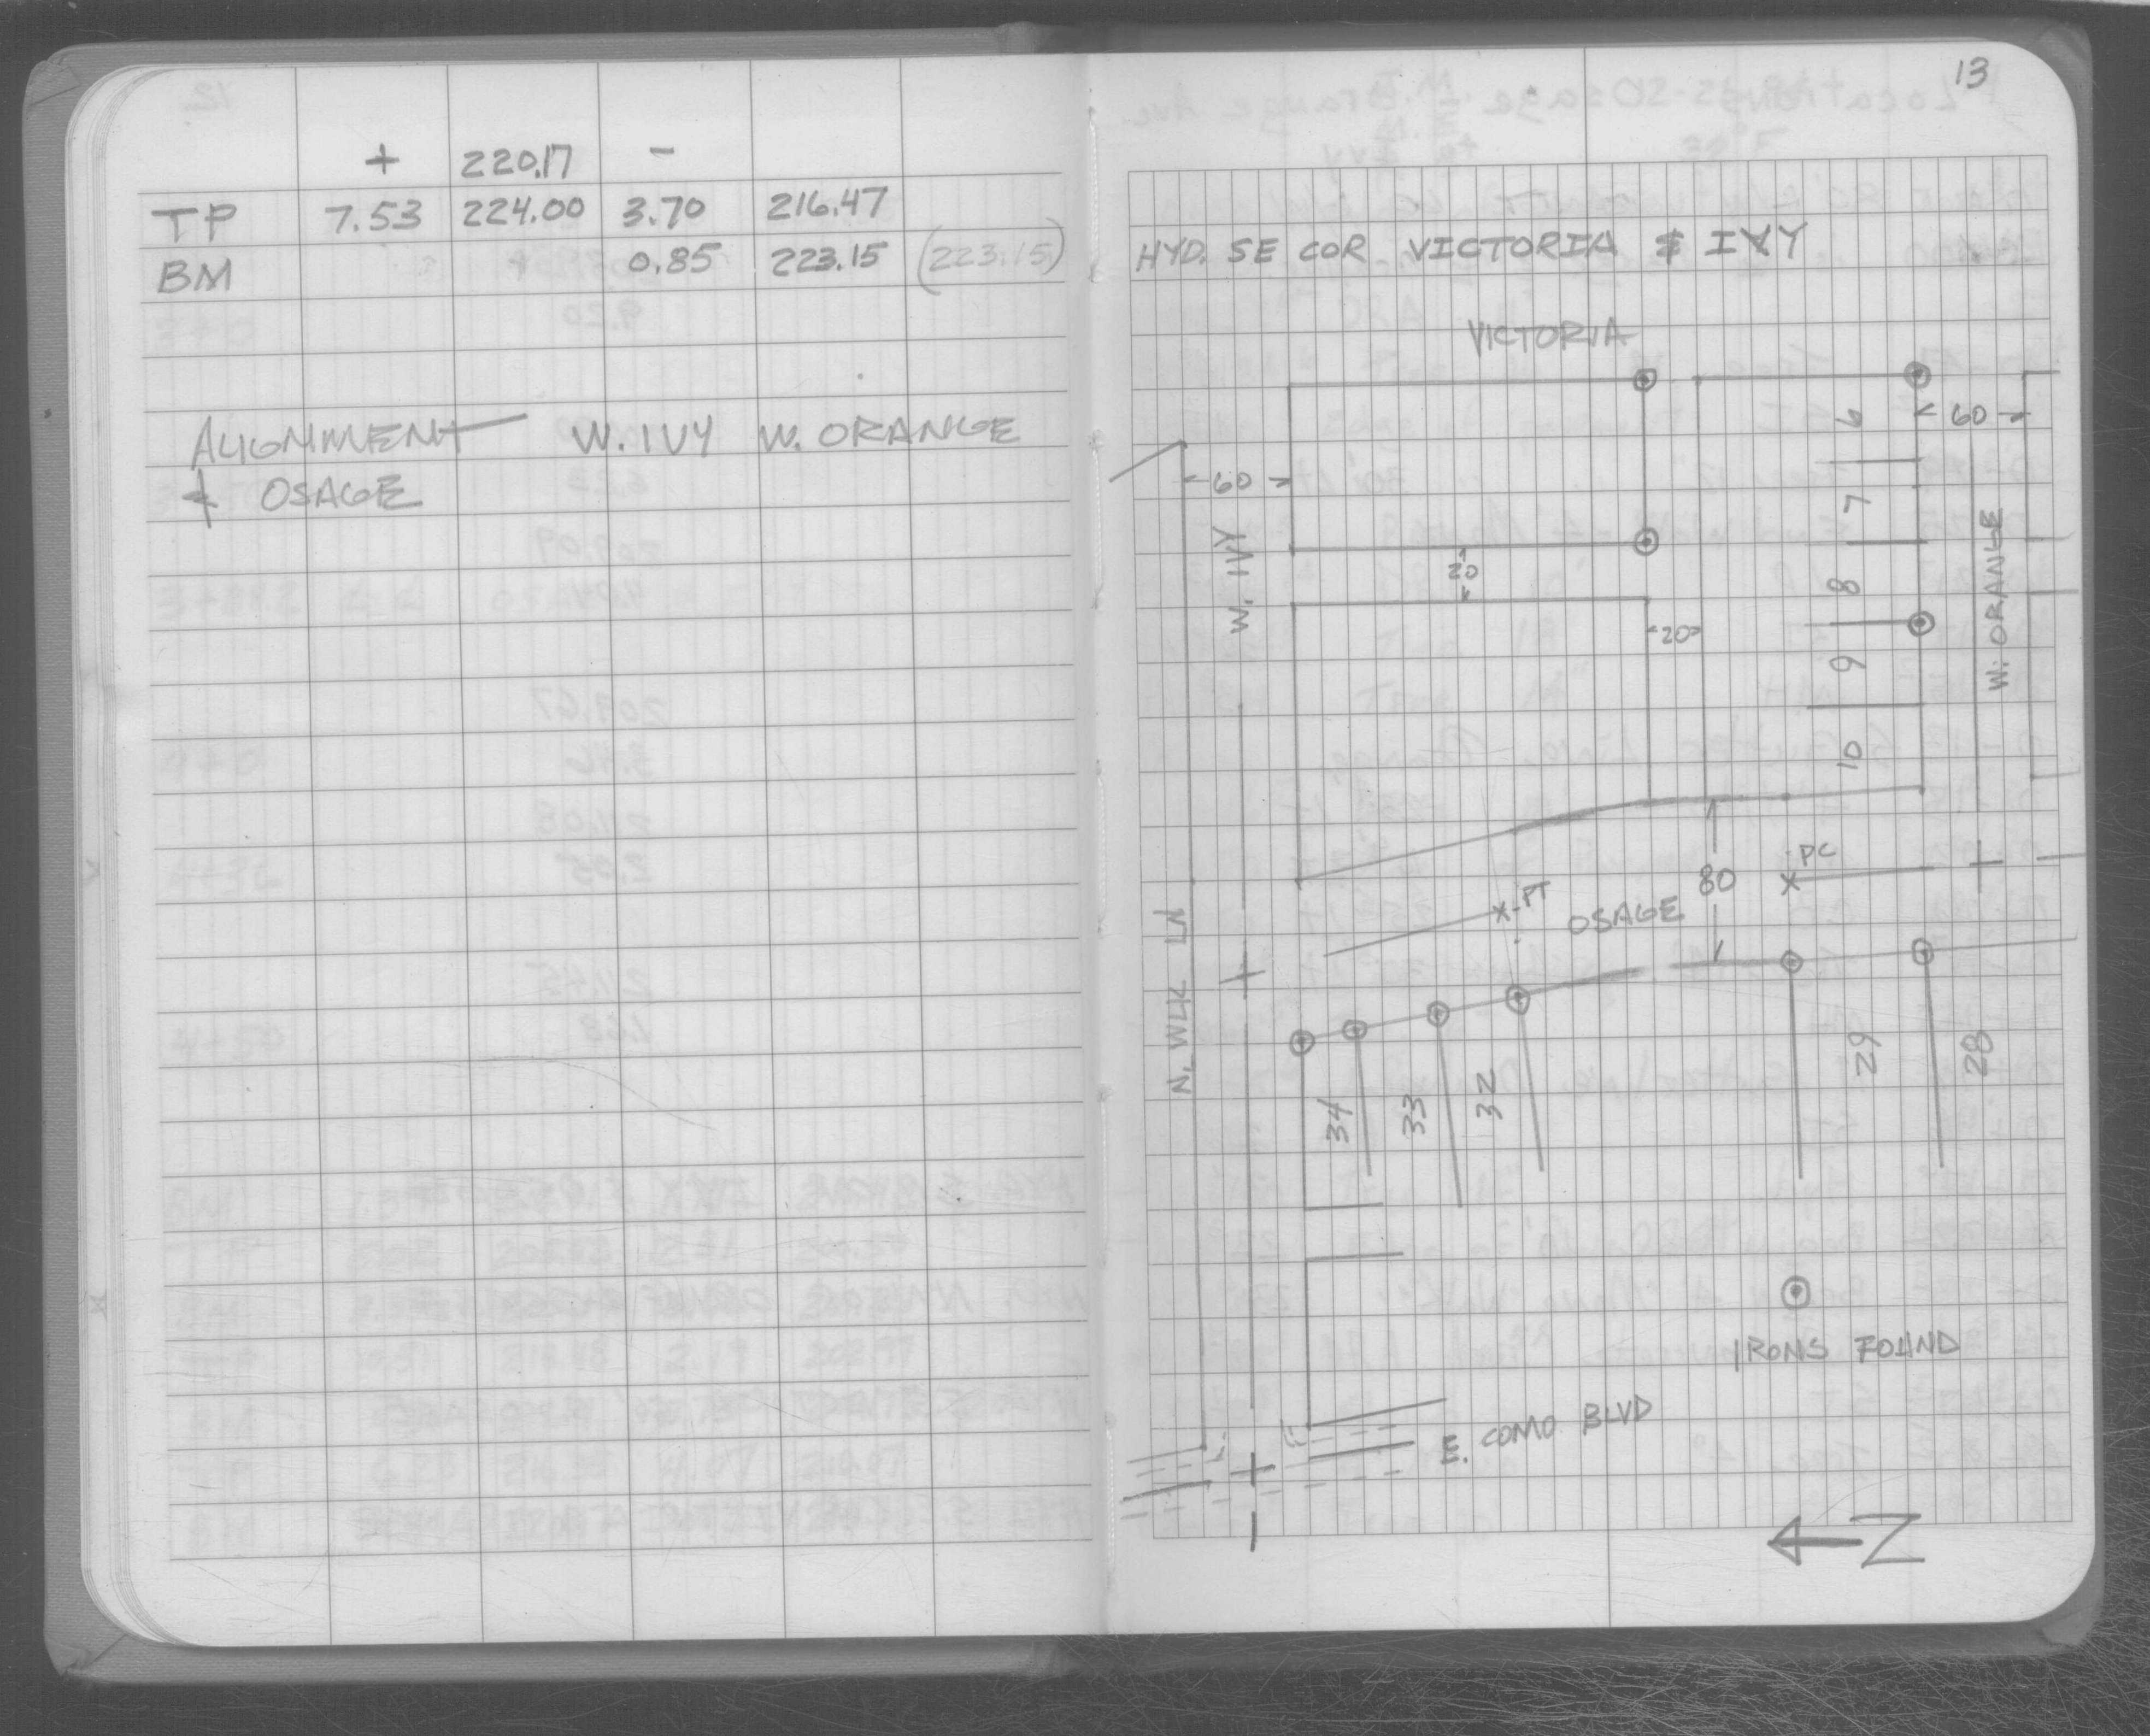 + 220.17 -
TP 7.53 224.00 3.70 216.47
BM 0.85 223.15 (223.15)
ALIGNMENT W. IVY W. ORANGE
& OSAGE
13
HYD. SE COR VICTORIA & IVY
VICTORIA
6
60
60
7
W. IVY
20
8
W. ORANGE
20
9
10
PC
80
PT
OSAGE
N. WLK LN
29
28
34
33
32
IRONS FOUND
E. COMO BLVD
N